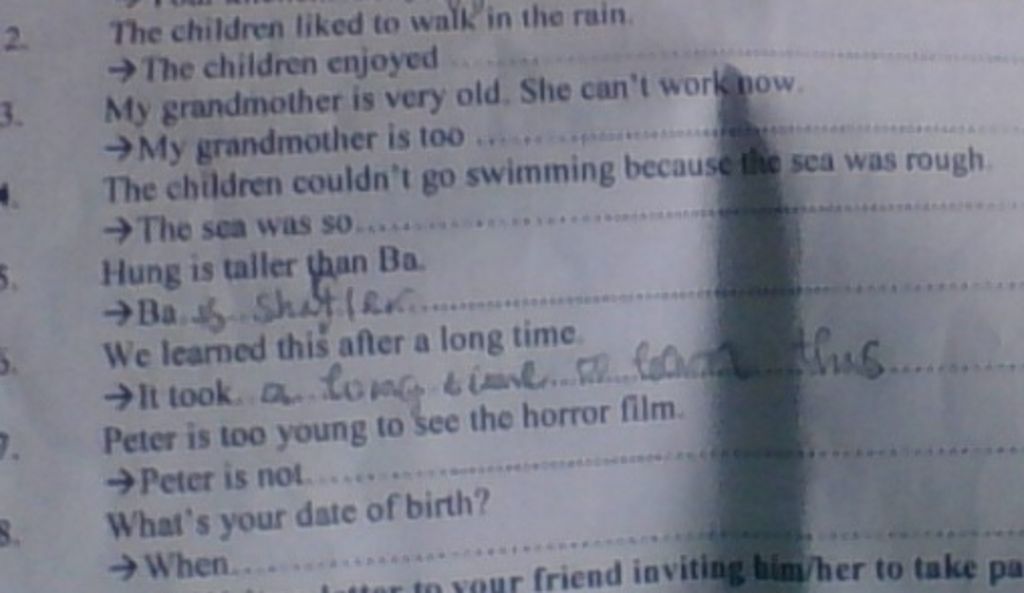 2. The children liked to walk in the rain.
→ The children enjoyed ........................
3. My grandmother is very old. She can't work now.
→ My grandmother is too ........................
The children couldn't go swimming because the sea was rough.
→ The sea was so ........................
5. Hung is taller than Ba.
→ Ba is ........................
We learned this after a long time.
→ It took a long time to learn this ........................
7. Peter is too young to see the horror film.
→ Peter is not ........................
8. What's your date of birth?
→ When ........................
letter to your friend inviting him/her to take